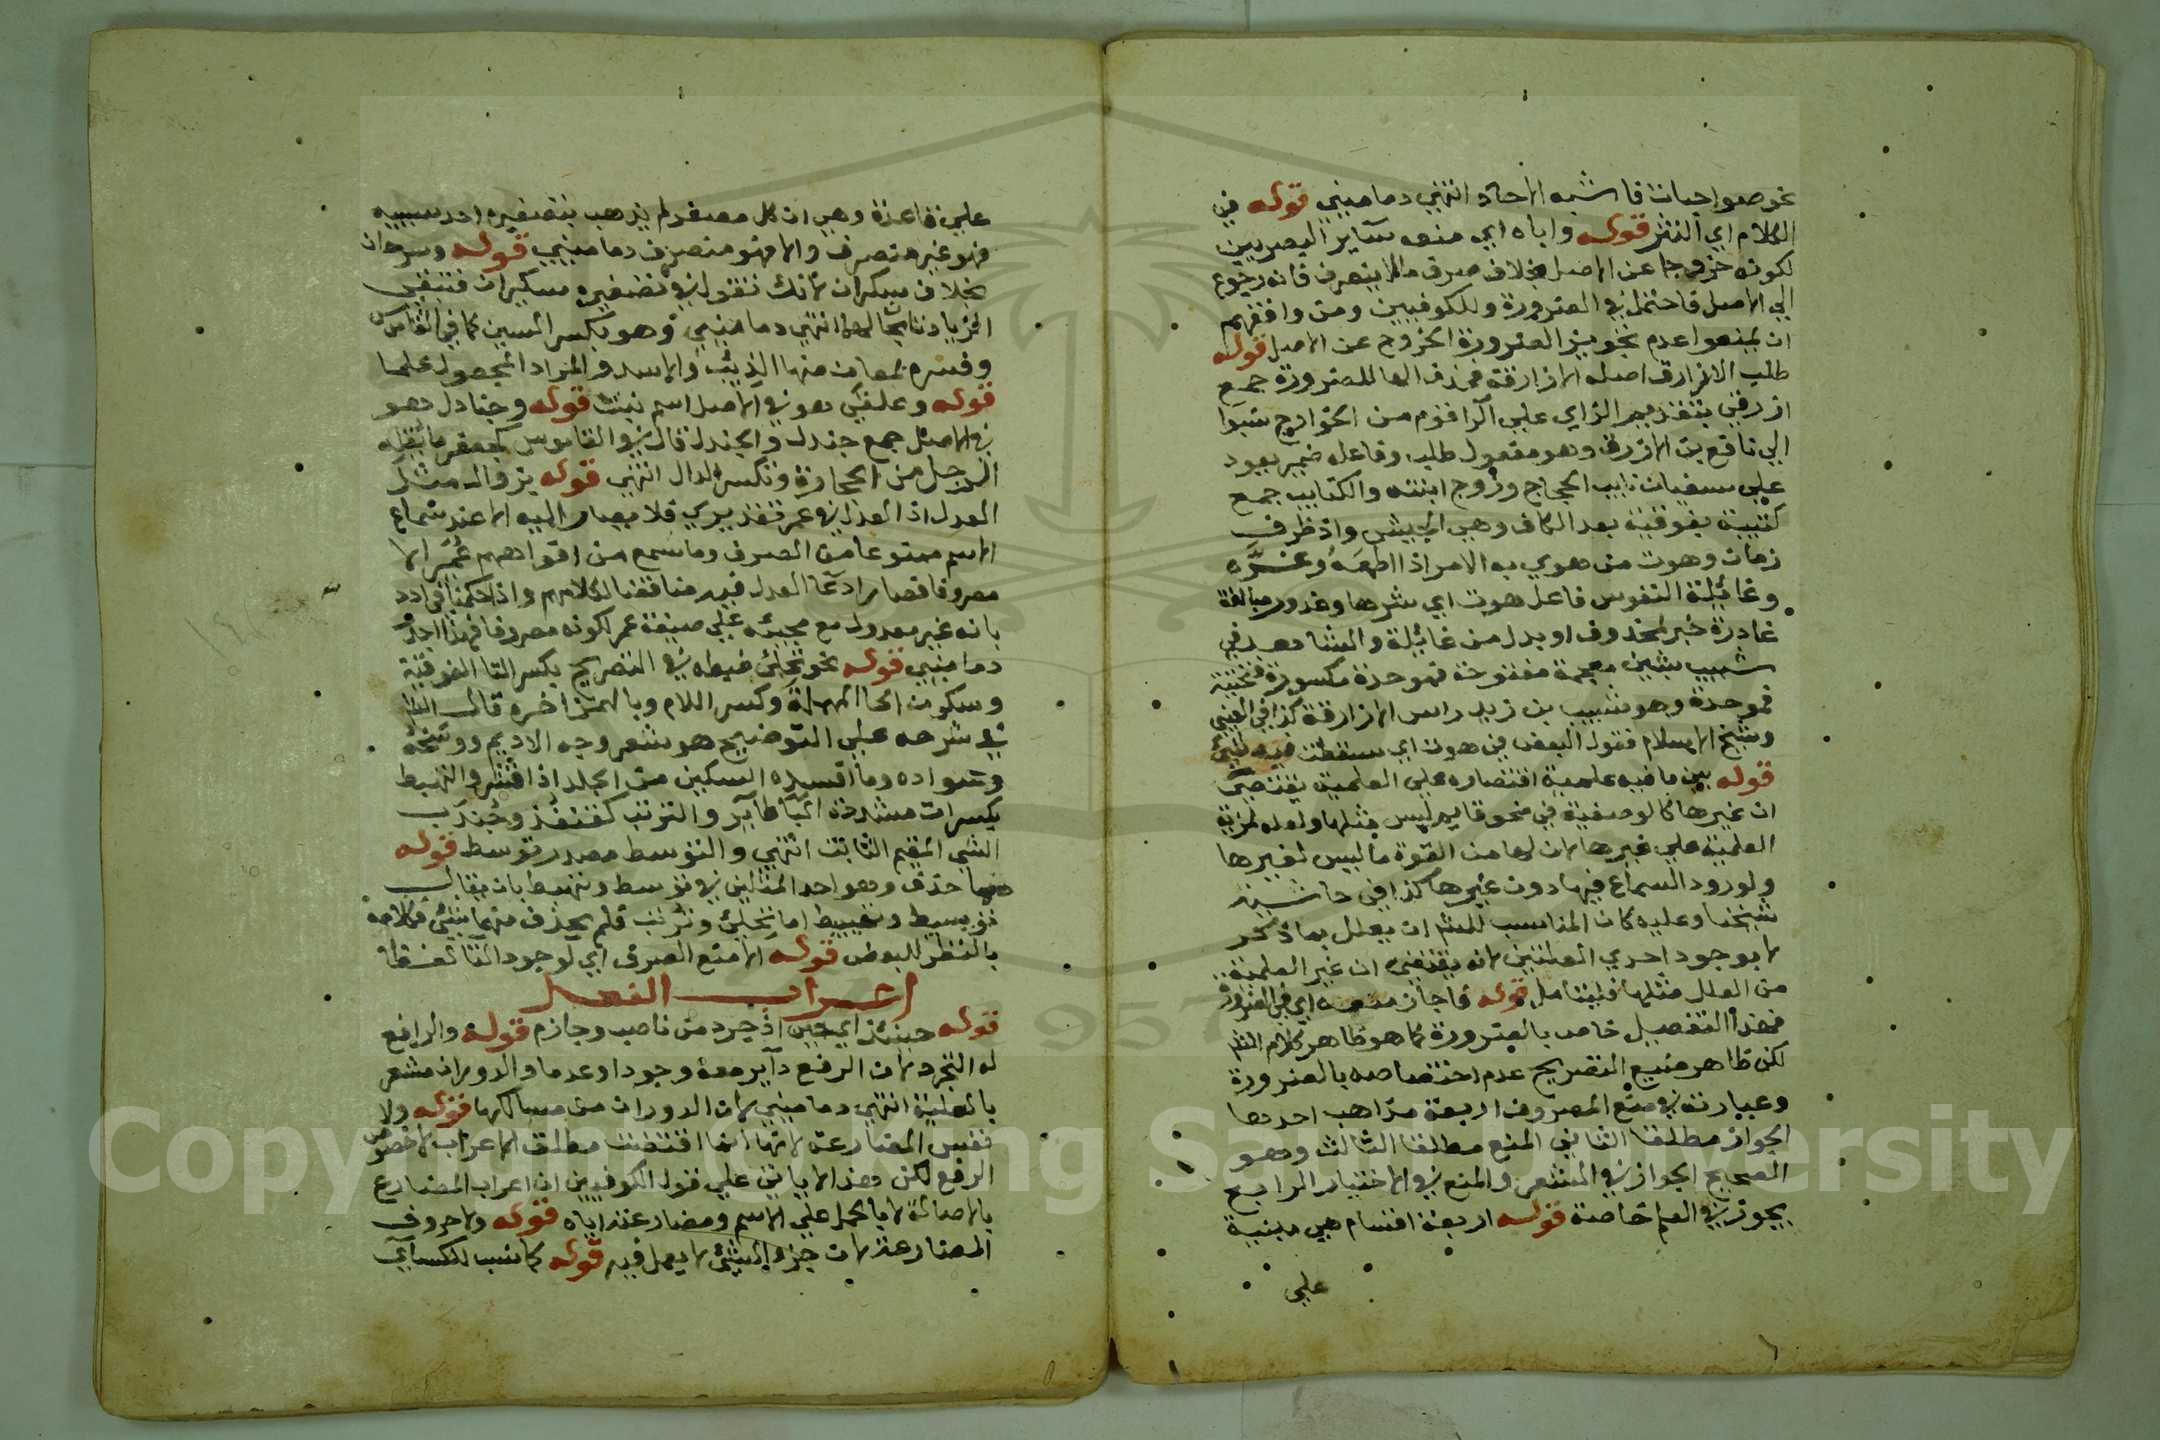 نحو صواحبات فاشبه الاحاد انتهي دماميني قوله في
الكلام اي النثر قوله واباه اي منعه سائر البصريين
لكونه خروجا عن الاصل بخلاف صرف ما لا ينصرف فانه رجوع
الي الاصل فاحتمل في الضرورة وللكوفيين ومن وافقهم
ان يمنعوا عدم تجويز الضرورة الخروج عن الاصل قوله
طلب الازارق اصله الازارقة فحذف الها للضرورة جمع
ازرقي بتقديم الزاي علي الرا قوم من الخوارج نسبوا
الي نافع بن الازرق وهو مفعول طلب وفاعله ضمير يعود
علي سفيان نايب الحجاج وزوج ابنته والكتايب جمع
كتيبة بفوقية بعد الكاف وهي الجيش واذ ظرف
زمان وهوت من هوي به الامر اذا اطمعه وغره
وغائلة النفوس فاعل هوت اي شرها وغدور مبالغة
غادرة خبر لمحذوف او بدل من غائلة والشاهد في
شبيب بشين معجمة مفتوحة فموحدة مكسورة فتحتية
فموحدة وهو شبيب بن زيد راس الازارقة كذا في العيني
وشيخ الاسلام فقول البعض في هوت اي سقطت فيه شيئ
قوله بين ما فيه علمية اقتصاره علي العلمية يقتضي
ان غيرها كالوصفية في نحو قايم ليس مثلها ولعله لمزية
العلمية علي غيرها لان لها من القوة ما ليس لغيرها
ولورود السماع فيها دون غيرها كذا في حاشية
شيخنا وعليه كان المناسب للش ان يعلل بما ذكر
لا بوجود احدي العلتين لانه يقتضي ان غير العلمية
من العلل مثلها فليتامل قوله فاجاز منعه اي في الضرورة
فهذا التفصيل خاص بالضرورة كما هو ظاهر كلام الش
لكن ظاهر صنيع التصريح عدم اختصاصه بالضرورة
وعبارته في منع المصروف اربعة مذاهب احدها
الجواز مطلقا الثاني المنع مطلقا الثالث وهو
الصحيح الجواز في الشعر والمنع في الاختيار الرابع
يجوز في العلم خاصة قوله اربعة اقسام هي مبنية
علي
علي قاعدة وهي ان كل مصغر لم يذهب بتصغيره احد سببيه
فهو غير متصرف والا فهو منصرف دماميني قوله وسرحان
بخلاف سكران لانك تقول في تصغيره سكيران فتبقي
الزيادتان بحالهما انتهي دماميني وهو بكسر السين كما في القاموس
وفسره بمعان منها الذئب والاسد والمراد المجعول علما
قوله وعلقي هو في الاصل اسم نبت قوله وجنادل هو
في الاصل جمع جندل والجندل قال في القاموس كجعفر ما يقله
الرجل من الحجارة وتكسر الدال انتهي قوله بزوال مثال
العدل اذ العدل في عمر تقديري فلا يصار اليه الا عند سماع
الاسم ممنوعا من الصرف وما سمع من افواههم عُمَر الا
مصروفا فصار ادعا العدل فيه مناقضا لكلامهم واذا حكمنا في ادد
بانه غير معدول مع مجيئه علي صيغة عمر لكونه مصروفا فهذا اجدر
دماميني قوله نحو تحلئ ضبطه في التصريح بكسر التا الفوقية
وسكون الحا المهملة وكسر اللام وبالهمز اخره قال الش
في شرحه علي التوضيح هو شعر وجه الاديم ووسخه
وسواده وما افسده السكين من الجلد اذا قشر والتهبط
بكسرات مشددة البا طاير والترتب كقنفذ وجندب
الشي المقيم الثابت انتهي والتوسط مصدر توسط قوله
مما حذف وهو احد المثلين في توسط وتهبط بان يقال
تويسيط وتهيبيط اما تحلئ وترتب فلم يحذف منهما شئ فكلامه
بالنظر للبعض قوله الا منع الصرف اي لوجود التا فقط
اعراب الفعل
قوله حينئذ اي حين اذ جرد من ناصب وجازم قوله والرافع
له التجرد لان الرفع داير معه وجودا وعدما والدوران مشعر
بالعلية انتهي دماميني لان الدوران من مسالكها قوله ولا
نفس المضارعة لانها انما اقتضت مطلق الاعراب لا خصوص
الرفع لكن هذا لا ياتي علي قول الكوفيين ان اعراب المضارع
بالاصالة لا بالحمل علي الاسم ومضارعته اياه قوله ولا حروف
المضارعة لان جزء الشئ لا يعمل فيه قوله كما نسب للكسائي
Copyright © King Saud University
1957